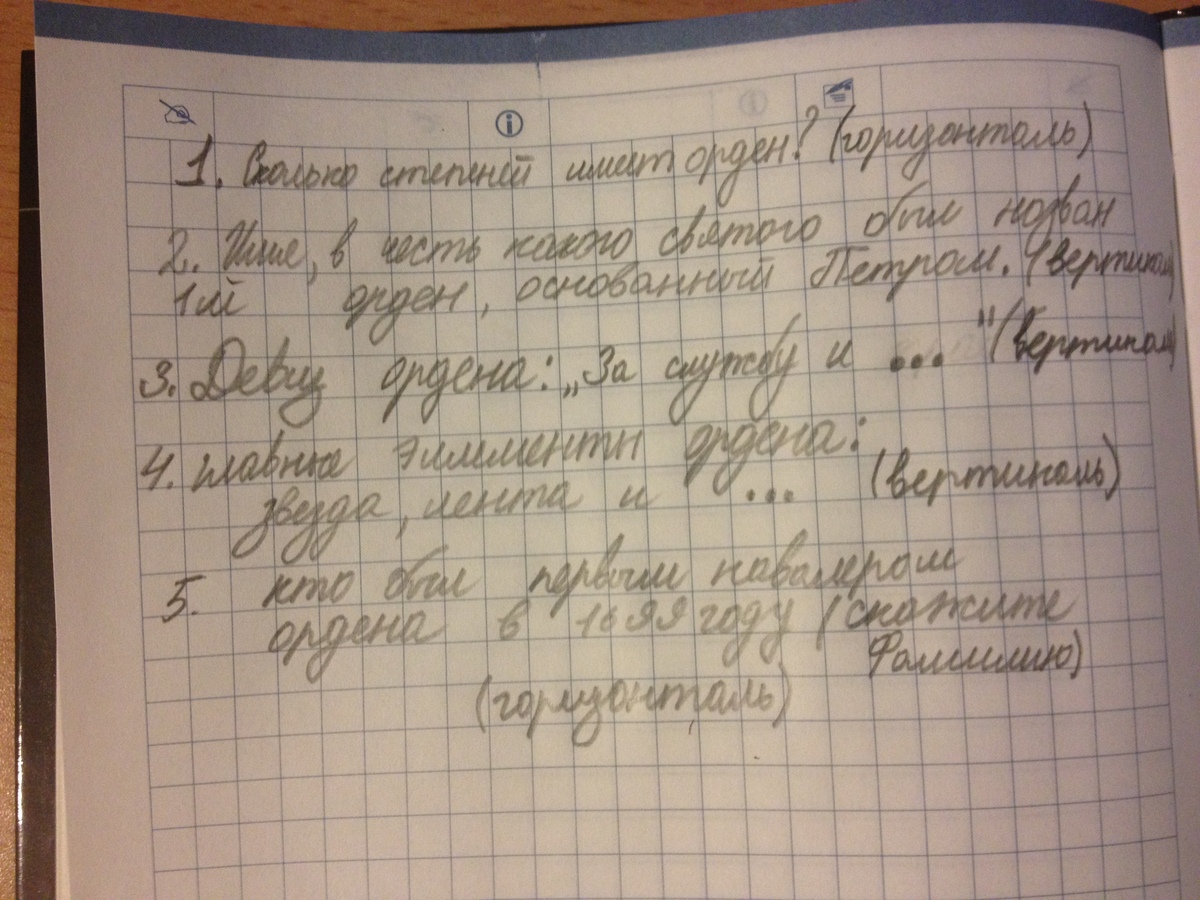 1. Сколько степеней имеет орден? (горизонталь)
2. Имя, в честь какого святого был назван
1й орден, основанный Петром. (вертикаль)
3. Девиз ордена: „За службу и ..." (вертикаль)
4. главные элементы ордена:
звезда, лента и ... (вертикаль)
5. кто был первым кавалером
ордена в 1699 году (скажите
Фамилию)
(горизонталь)